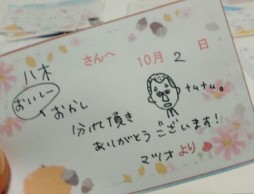 八木さんへ 10月2日
おいしー
おかし
ナムナム。
分けて頂き
ありがとうございます!
マツオより